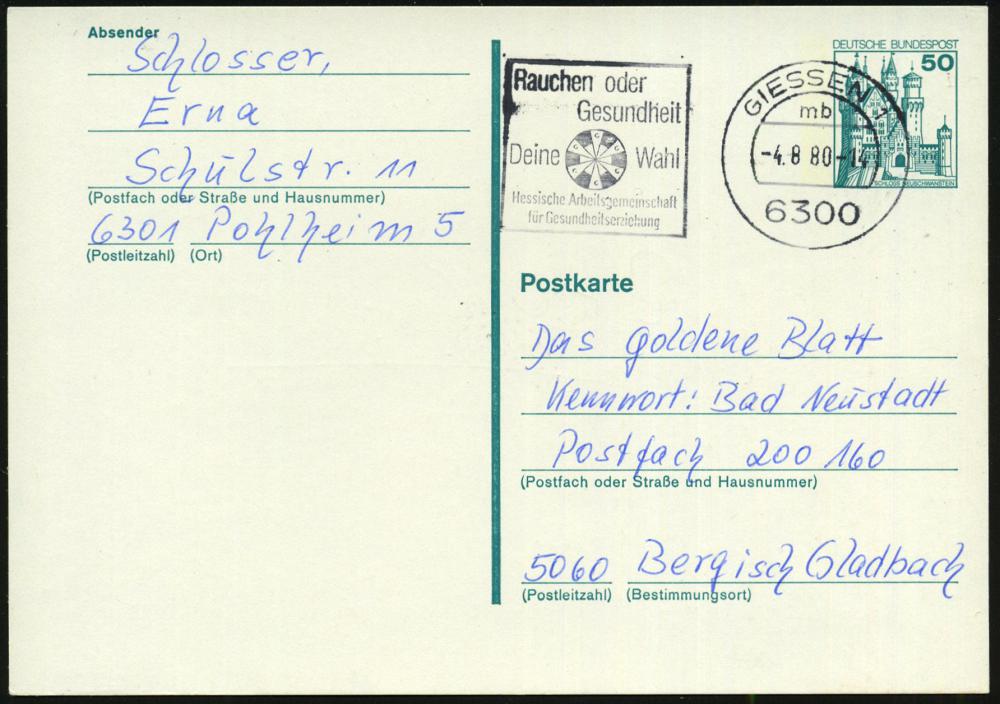 Absender
Schlosser,
Erna
Schulstr. 11
(Postfach oder Straße und Hausnummer)
6301 Pohlheim 5
(Postleitzahl) (Ort)
Rauchen oder
Gesundheit
Deine Wahl
Hessische Arbeitsgemeinschaft
für Gesundheitserziehung
DEUTSCHE BUNDESPOST
50
SCHLOSS NEUSCHWANSTEIN
GIESSEN 1
mb
-4.8.80-14
6300
Postkarte
Das goldene Blatt
Kennwort: Bad Neustadt
Postfach 200 160
(Postfach oder Straße und Hausnummer)
5060 Bergisch Gladbach
(Postleitzahl) (Bestimmungsort)